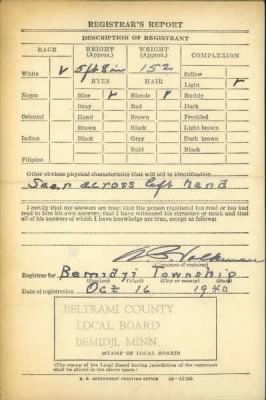 REGISTRAR'S REPORT
DESCRIPTION OF REGISTRANT
RACE HEIGHT (Approx.) WEIGHT (Approx.) COMPLEXION
White ✓ 5 ft 8 in 152 Sallow
EYES HAIR Light ✓
Negro Blue ✓ Blonde ✓ Ruddy
Gray Red Dark
Oriental Hazel Brown Freckled
Brown Black Light brown
Indian Black Gray Dark brown
Bald Black
Filipino
Other obvious physical characteristics that will aid in identification
Scar across left hand
I certify that my answers are true; that the person registered has read or has had
read to him his own answers; that I have witnessed his signature or mark and that
all of his answers of which I have knowledge are true, except as follows:
(Signature of registrar)
Registrar for Bemidji Township
(Precinct) (Ward) (City or county) (State)
Date of registration Oct 16 1940
BELTRAMI COUNTY
LOCAL BOARD
BEMIDJI, MINN.
(STAMP OF LOCAL BOARD)
(The stamp of the Local Board having jurisdiction of the registrant
shall be placed in the above space.)
U. S. GOVERNMENT PRINTING OFFICE